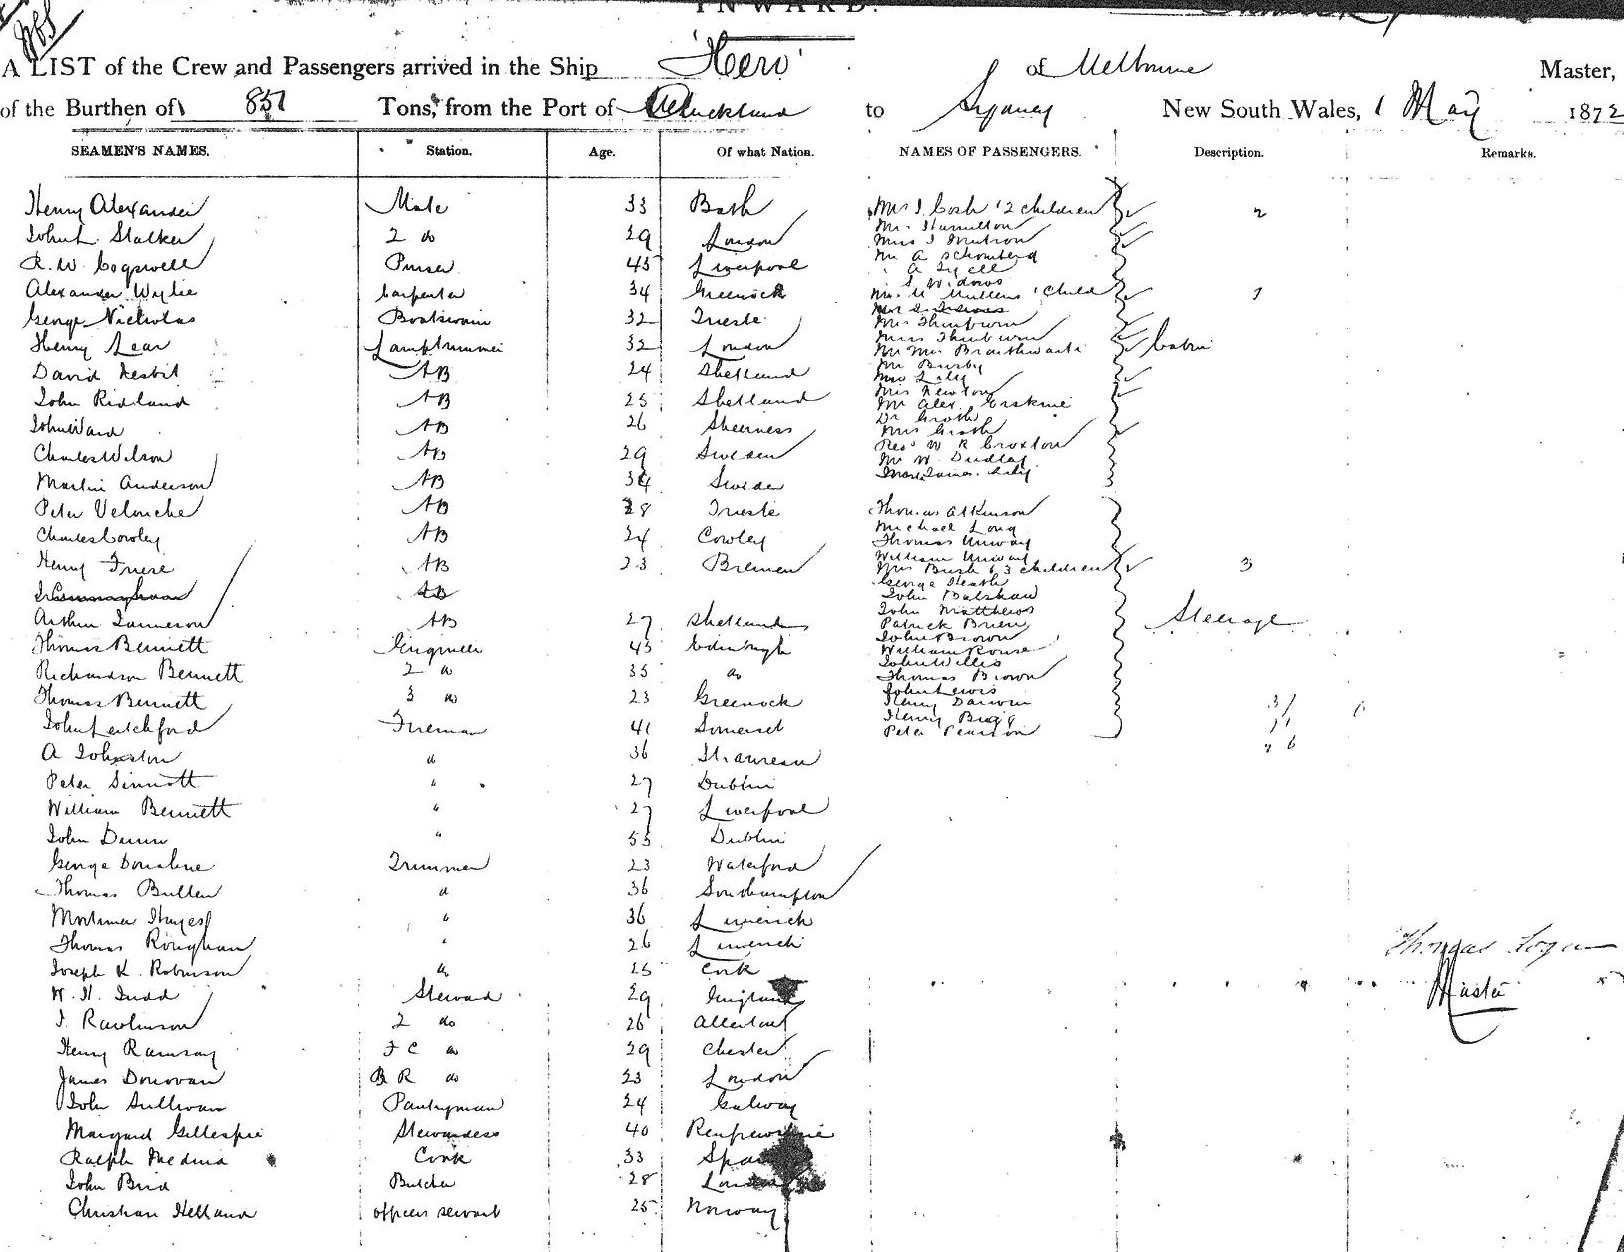 INWARD.
A LIST of the Crew and Passengers arrived in the Ship 'Hero' of Melbourne Master,
of the Burthen of 851 Tons, from the Port of Auckland to Sydney New South Wales, 1 May 1872
SEAMEN'S NAMES. Station. Age. Of what Nation.
Henry Alexander Mate 33 Bath
John L. Stalker 2 do 29 London
R. W. Cogswell Purser 45 Liverpool
Alexander Wylie Carpenter 34 Greenock
George Nicholas Boatswain 32 Trieste
Henry Lear Lamptrimmer 32 London
David Nesbit AB 24 Shetland
John Ridland AB 25 Shetland
John Ward AB 26 Sheerness
Charles Wilson AB 29 Sweden
Martin Anderson AB 34 Sweden
Peter Velonche AB 28 Trieste
Charles Cowley AB 24 Cowley
Henry Friese AB 23 Bremen
AB
Arthur Jameson AB 27 Shetland
Thomas Bennett Engineer 45 Edinburgh
Richardson Bennett 2 do 35 do
Thomas Bennett 3 do 23 Greenock
John Letchford Fireman 41 Somerset
A Johnston " 36
Peter Sinnott " 27 Dublin
William Bennett " 27 Liverpool
John Dunn " 55 Dublin
George Donohue Trimmer 23 Waterford
Thomas Bullen " 36 Southampton
Mortimer Hayes " 36 Limerick
Thomas Roughan " 26 Limerick
Joseph K. Robinson " 25 Cork
W. H. Judd Steward 29 England
J. Rawlinson 2 do 26
Henry Ramsay F C do 29 Chester
James Donovan B R do 23 London
John Sullivan Pantryman 24 Galway
Margaret Gillespie Stewardess 40 Renfrewshire
Ralph Medina Cook 33 Spain
John Bird Butcher 28 London
Christian Helland officers servant 25 Norway
NAMES OF PASSENGERS. Description. Remarks.
Mrs J. Cosh & 2 children 2
Mr. Hamilton
Miss J
Mr A Schomberg
A
S Widows
Mrs M Mullens 1 Child 1
Mrs Thinbum
Miss Thinbum
Mr Mrs Braithwaite Cabin
Mr Busby
Mrs Lily
Mrs Newton
Mr Alex. Erskine
Dr Groth
Mrs Groth
Revd W R Croxton
Mr W. Dudley
Lily
Thomas Atkinson
Michael Long
Thomas Unway
William Unway
Mrs Bush & 3 children 3
George Heath
John Balshaw
John Matthews
Patrick Brien Steerage
John Brown
William Rouse
John Willis
Thomas Brown
John Lewis
Henry Darwin 31 6
Henry Bugg
Peter Pearson
26
Thomas Logan
Master